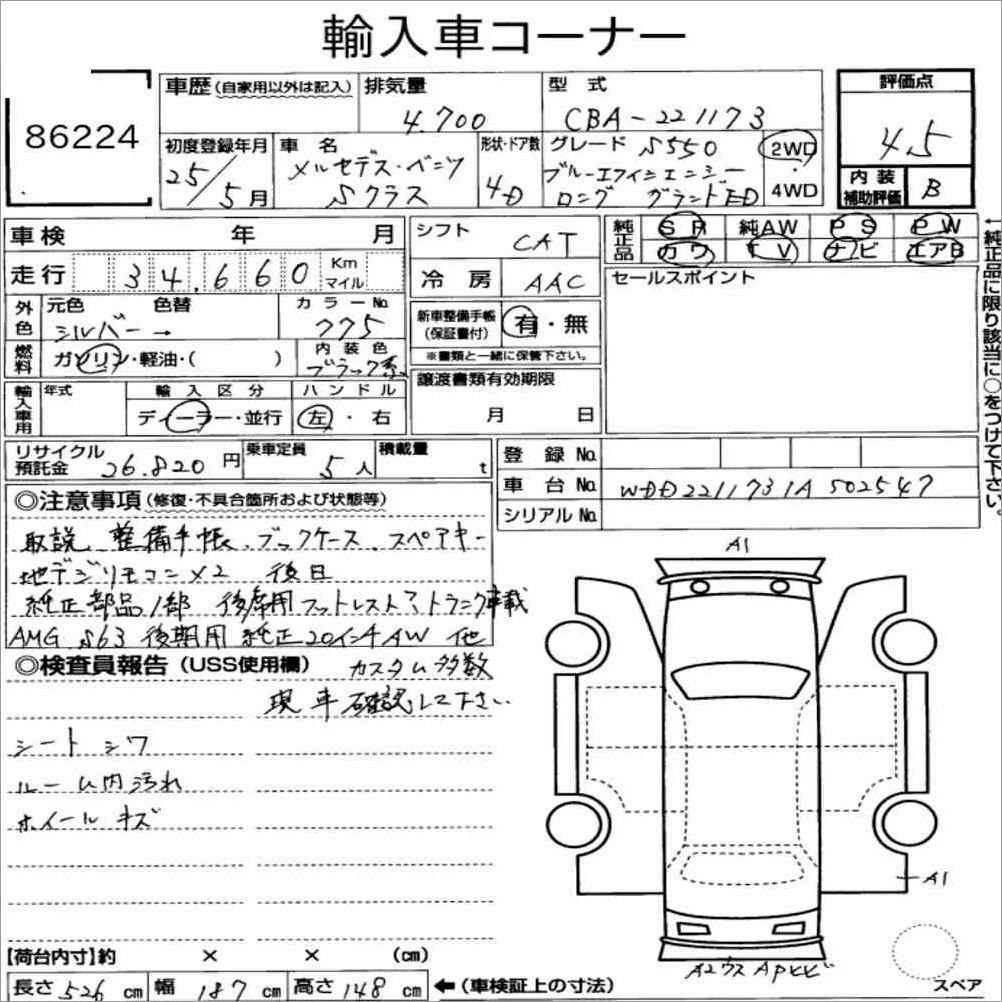 輸入車コーナー
86224
車歴(自家用以外は記入)
排気量
4.700
型式
CBA-221173
評価点
4.5
初度登録年月
25/5月
車名
メルセデス・ベンツ
Sクラス
形状・ドア数
4D
グレード S550
ブルーエフィシェンシー
ロング グランドED
2WD
4WD
内装
補助評価
B
車検 年 月
シフト
CAT
純正品
SR 純AW PS PW
カワ TV ナビ エアB
走行 34.660 Km
マイル
冷房
AAC
セールスポイント
外色
元色 色替
シルバー→
カラーNo.
775
新車整備手帳
(保証書付)
有・無
※書類と一緒に保管下さい。
燃料
ガソリン・軽油・( )
内装色
ブラック系
輸入車用
年式
輸入区分
ディーラー・並行
ハンドル
左・右
譲渡書類有効期限
月 日
←純正品に限り該当に○をつけて下さい。
リサイクル
預託金 26.820円
乗車定員
5人
積載量
t
登録No.
車台No. WDD2211731A502547
シリアルNo.
◎注意事項(修復・不具合箇所および状態等)
取説、整備手帳、ブックケース、スペアキー
地デジリモコン×2 後日
純正部品1部 後席用フットレスト?トランク車載
AMG S63 後期用 純正20インチAW 他
カスタム多数
◎検査員報告(USS使用欄)
現車確認して下さい
シートシワ
ルーム内汚れ
ホイールキズ
A1
A1
A2ウス APヒビ
スペア
【荷台内寸】約 × × (cm)
長さ526cm 幅187cm 高さ148cm ←(車検証上の寸法)